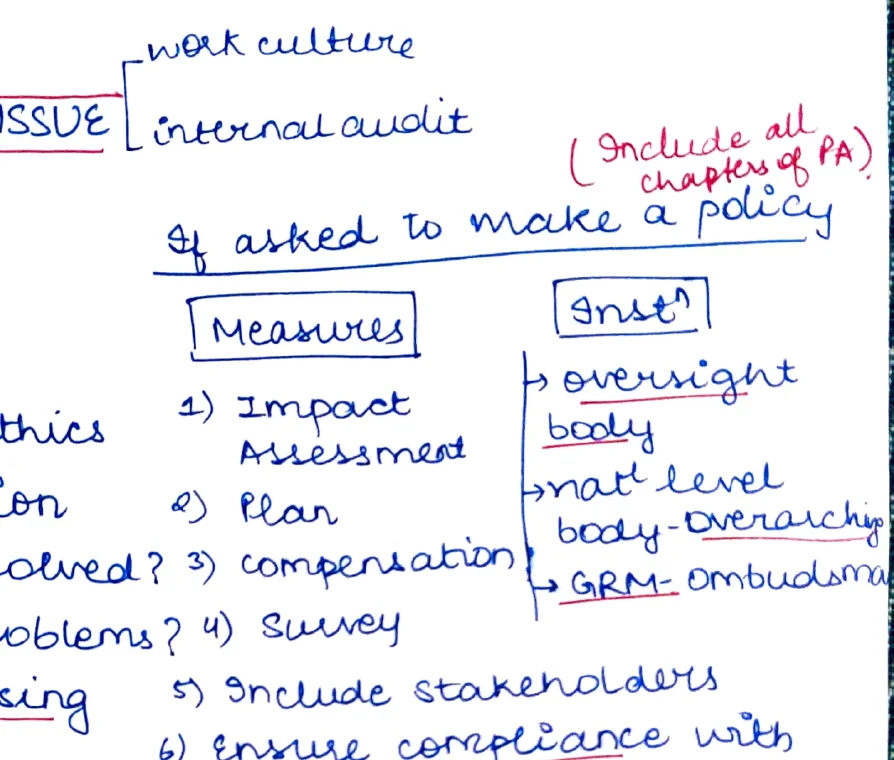 work culture
ISSUE
internal audit
(Include all
chapters of PA)
If asked to make a policy
Measures
Instⁿ
1) Impact
Assessment
2) Plan
3) compensation
4) Survey
5) Include stakeholders
6) Ensure compliance with
→ oversight
body
→ natˡ level
body - overarching
→ GRM - Ombudsma
thics
ion
olved?
oblems?
sing